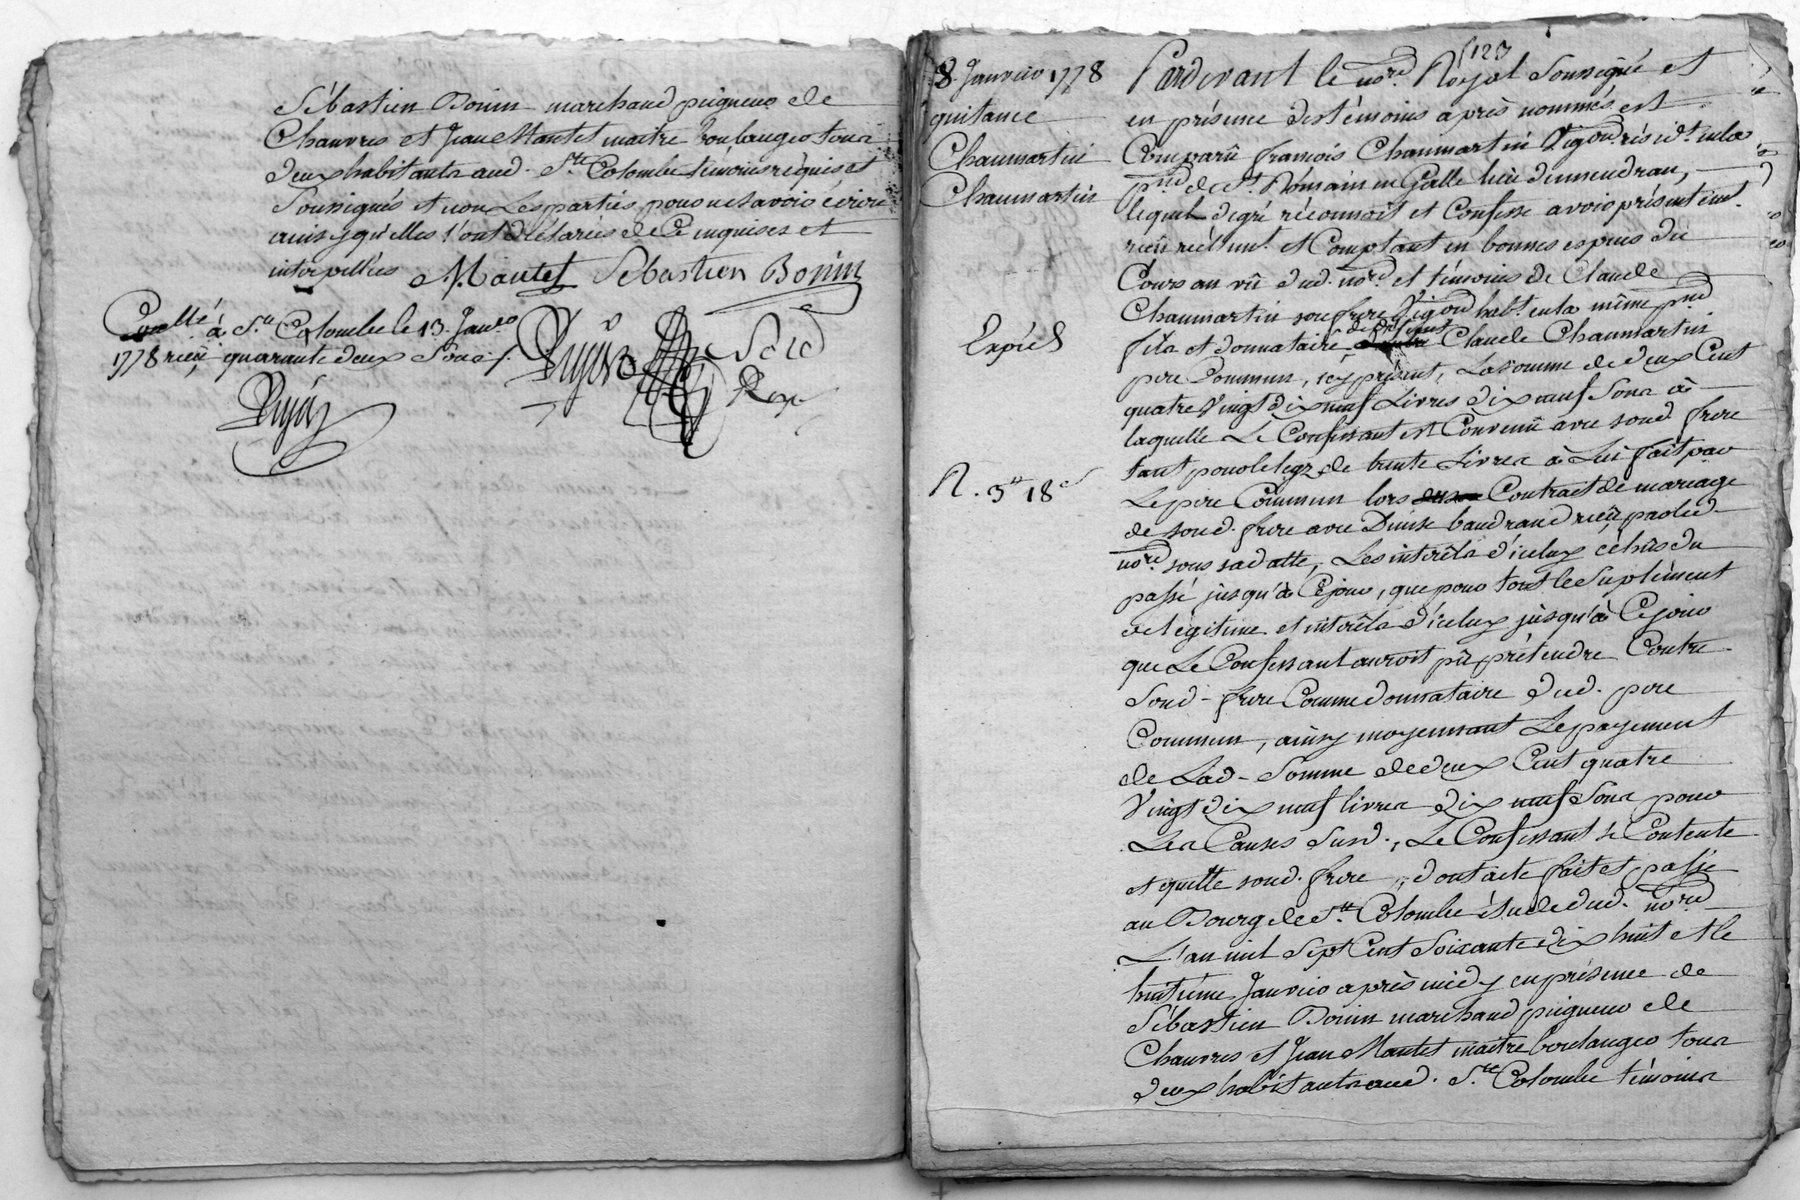 Sébastien Bonin marchand peigneur de
Chanvres et Jean Mantet maitre boulanger tous
deux habitants aud. Ste Colombe témoins réquis et
Soussignés et non Les parties pour ne savoir écrire
ainsy qu'elles l'ont déclarées de Ce enquises et
interpellées Mantet Sébastien Bonin
Conllé à Ste Colombe le 13. Janver
1778 réçu quarante deux Sous
8. Janvier 1778
quitance
Chaumartin
Chaumartin
Expiés
R. 3tt 18s
123
Pardevant le nore Royal soussigné et
en présence des témoins après nommés est
Comparû françois Chaumartin Vigon résidt en la
psse de St. Romain en Galle lieu d'emendran,
lequel de gré réconnoit et Confesse avoir présentemt.
reçû réellmt. et Comptant en bonnes espèces du
Cours au vû dud. nore et témoins de Claude
Chaumartin son frere Vigon habt. en la même psse
fils et donnataire de défunt Claude Chaumartin
pere Commun, icy présent, La somme de deux Cent
quatre Vingt dix neuf Livres dix neuf Sous à
laquelle Le Confessant est Convenû avec soud. frere
tant pour le legz de trente Livres à Lui fait par
Le pere Commun lors Contract de mariage
de soud. frere avec Denise baudrand réçu par led.
nore sous sa datte, Les intérêts d'icelux échûs du
passé jusqu'à Ce jour, que pour tout le Suplément
de légitime et intérêts d'icelux jusqu'à Ce jour
que Le Confessant auroit pû prétendre Contre
Soud. frere Comme donnataire dud. pere
Commun, ainsy moyennant Le payement
de Lad. Somme de deux Cent quatre
Vingt dix neuf livres dix neuf Sous pour
Les Causes Susd., Le Confessant se Contente
et quitte soud. frere, dont acte fait et passé
au Bourg de Ste Colombe étude dud. nore
L'an mil Sept Cent Soixante dix huit et le
huitième Janvier après midy en présence de
Sébastien Bonin marchand peigneur de
Chanvres et Jean Mantet maitre boulanger tous
deux habitants aud. Ste Colombe témoins